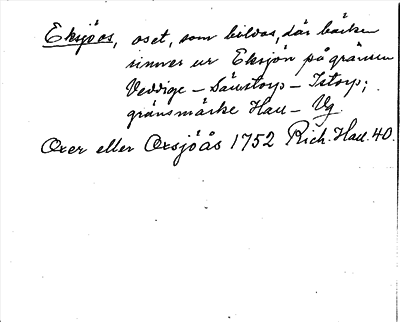 Eksjöos, oset, som bildas, där bäcken
rinner ur Eksjön på gränsen
Veddige – Säwstorp – Istorp;
gränsmärke Hall – Vg.
Oxer eller Oxsjöås 1752 Rich. Hall. 40.